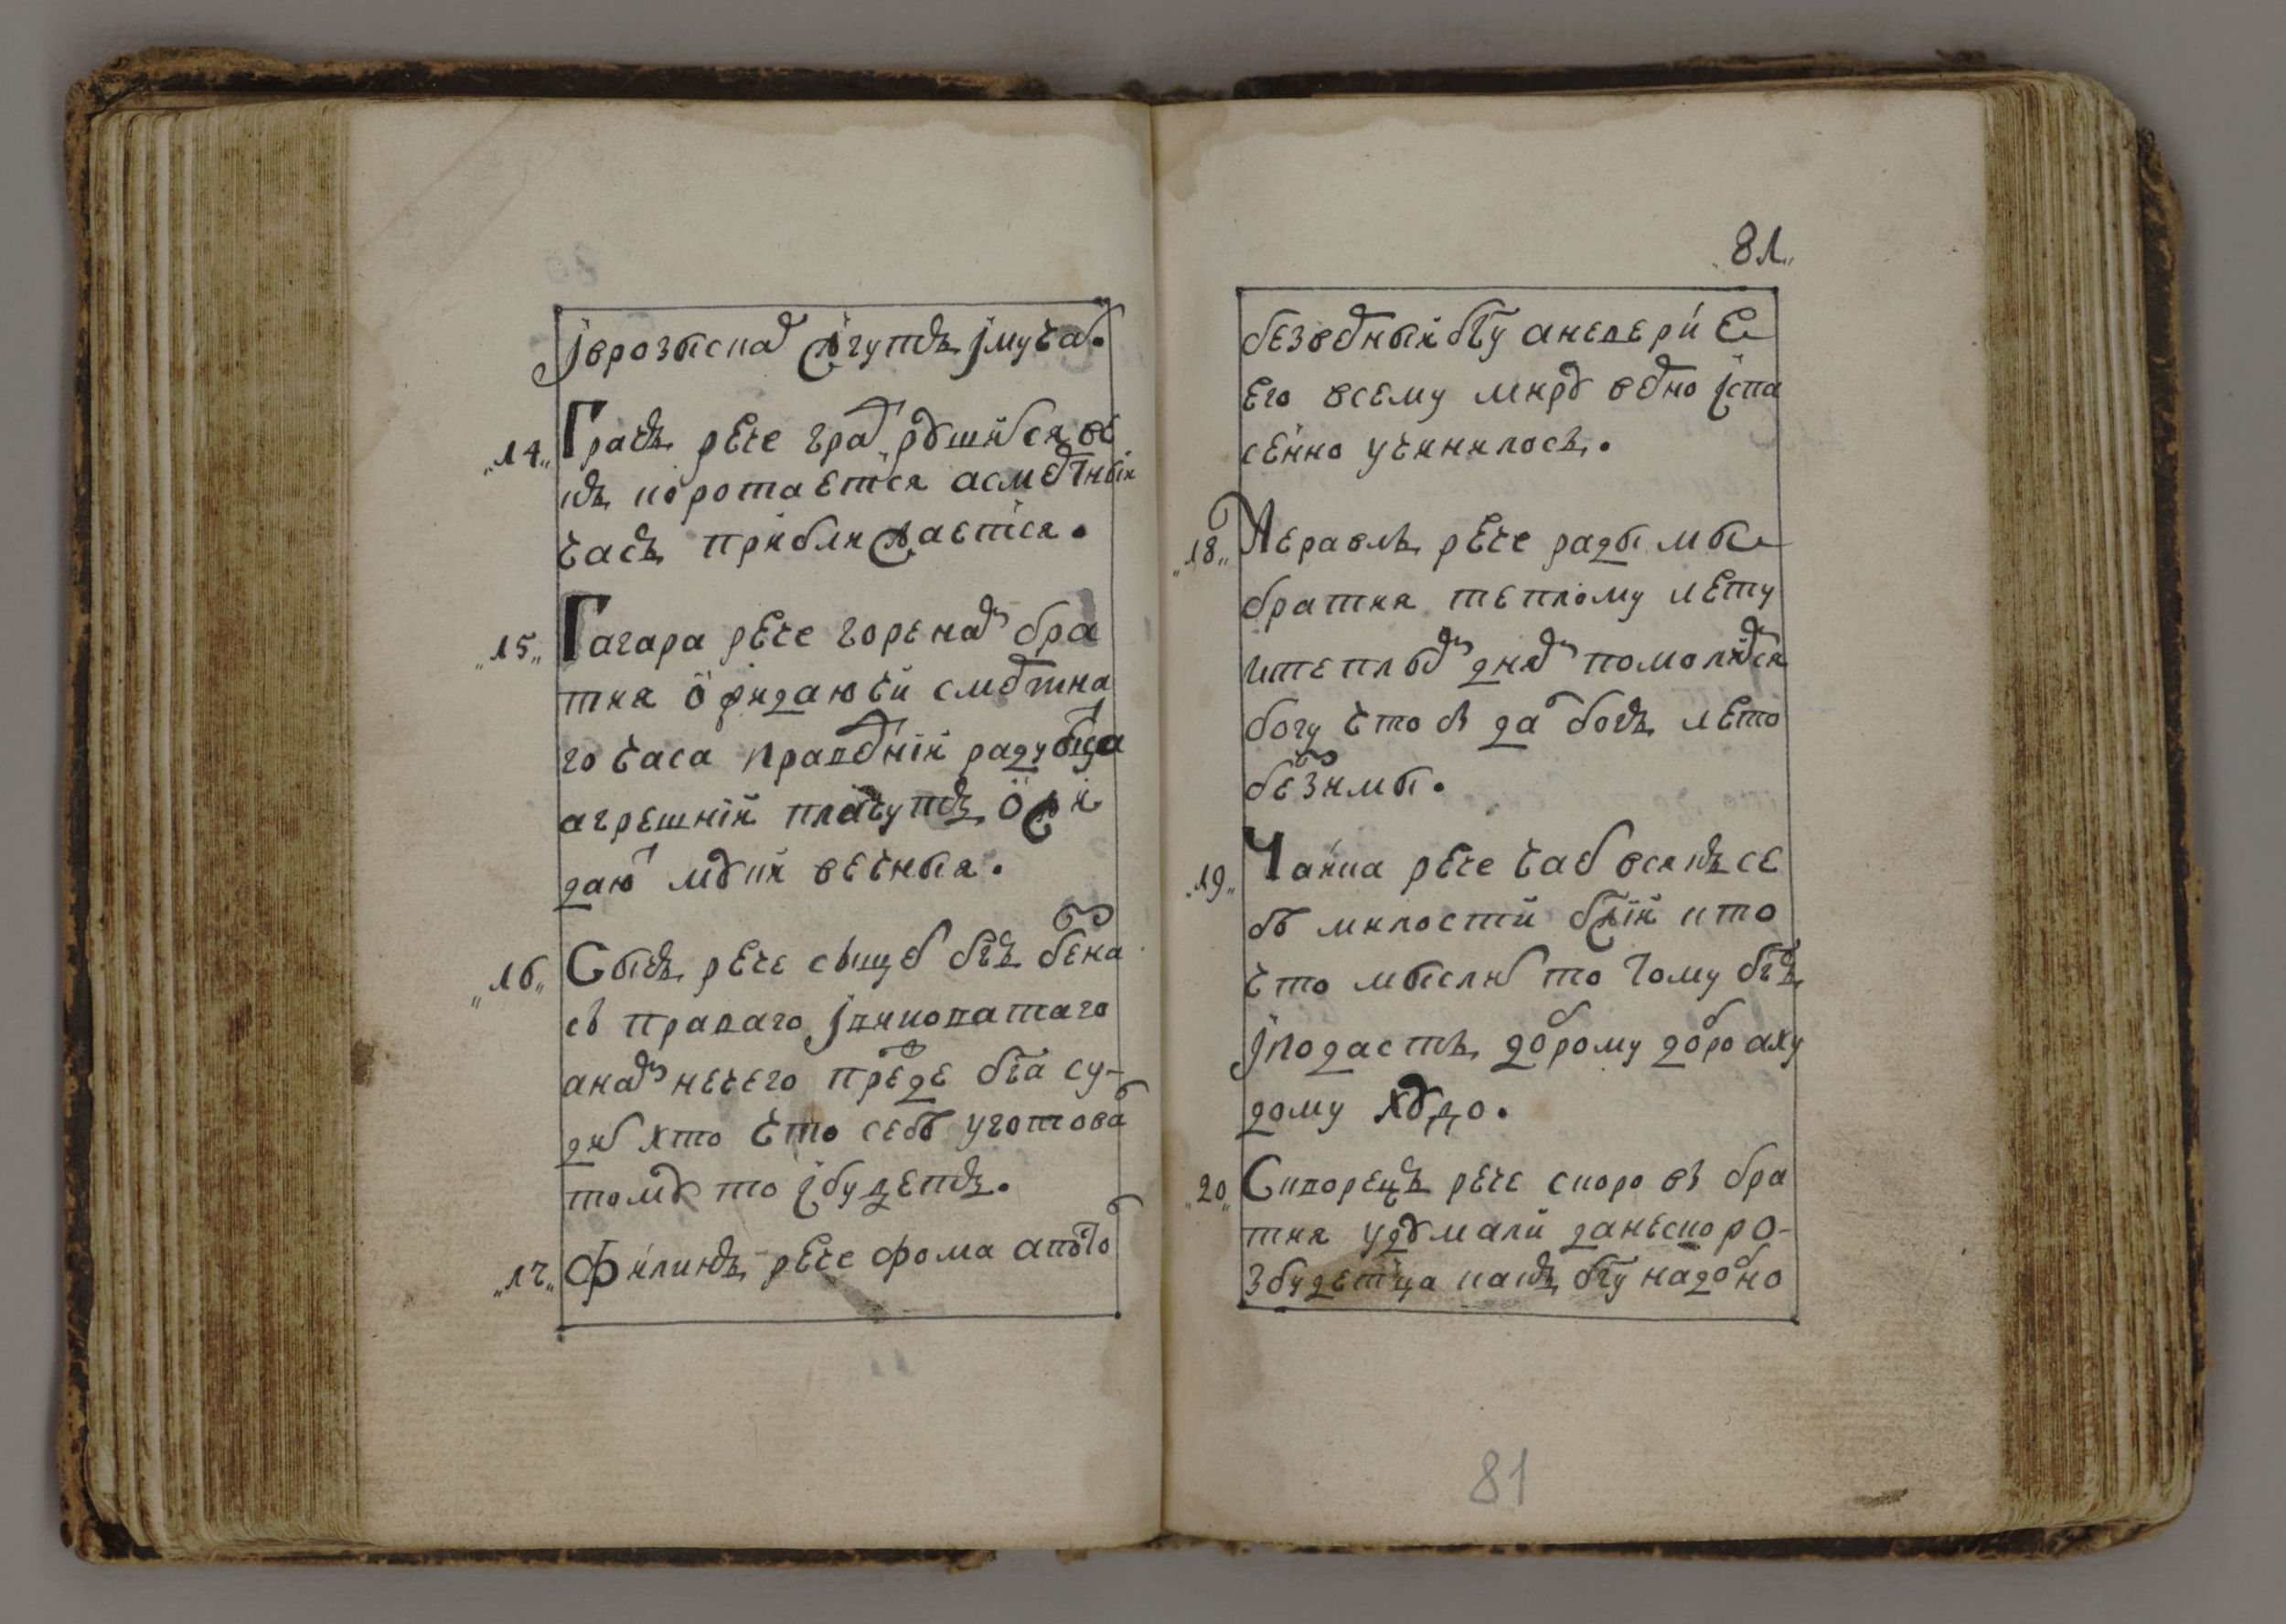 јврозыскаⷯ жгутъ јмучаⷮ.
„14„ Грачь рече граⷣ рушитⷭся ве
къ коротаетъся асмеⷬтныи
часъ приближаетъся.
„15„ Гагара рече горенаⷨ бра
тия ожидаючи смеⷬтна
го часа праведнїи радуюⷮца
агрешнїи плачутъ ожи
даюⷮ муки вечныя.
„16„ Сычь рече сыщеⷮ бг҃ъ беⷥна
съ праваго јвиноватаго
анаⷨ нечего преⷤде бг҃а су-
диⷮ хто что себѣ уготоваⷧ
тому то јбудетъ.
„17„ Филинъ рече фома апоⷭтоⷧ
81„
безведныи бг҃у аневерие
его всему миру ведно јспа
сенно учинилось.
„18„ Жеравль рече рады мы
братия теплому лету
ктеплыⷨ днеⷨ помолиⷨся
богу чтоб даⷧ богъ лето
беⷥзимы.
„19„ Чаика рече чаеⷮ всякъ се
бѣ милости бж҃їи кто
что мыслиⷮ то тому бг҃ъ
јподастъ доброму добро аху
дому худо.
„20„ Скворецъ рече скоро вы бра
тия удумали данескоро-
збудетъца какъ бг҃у надобно
81